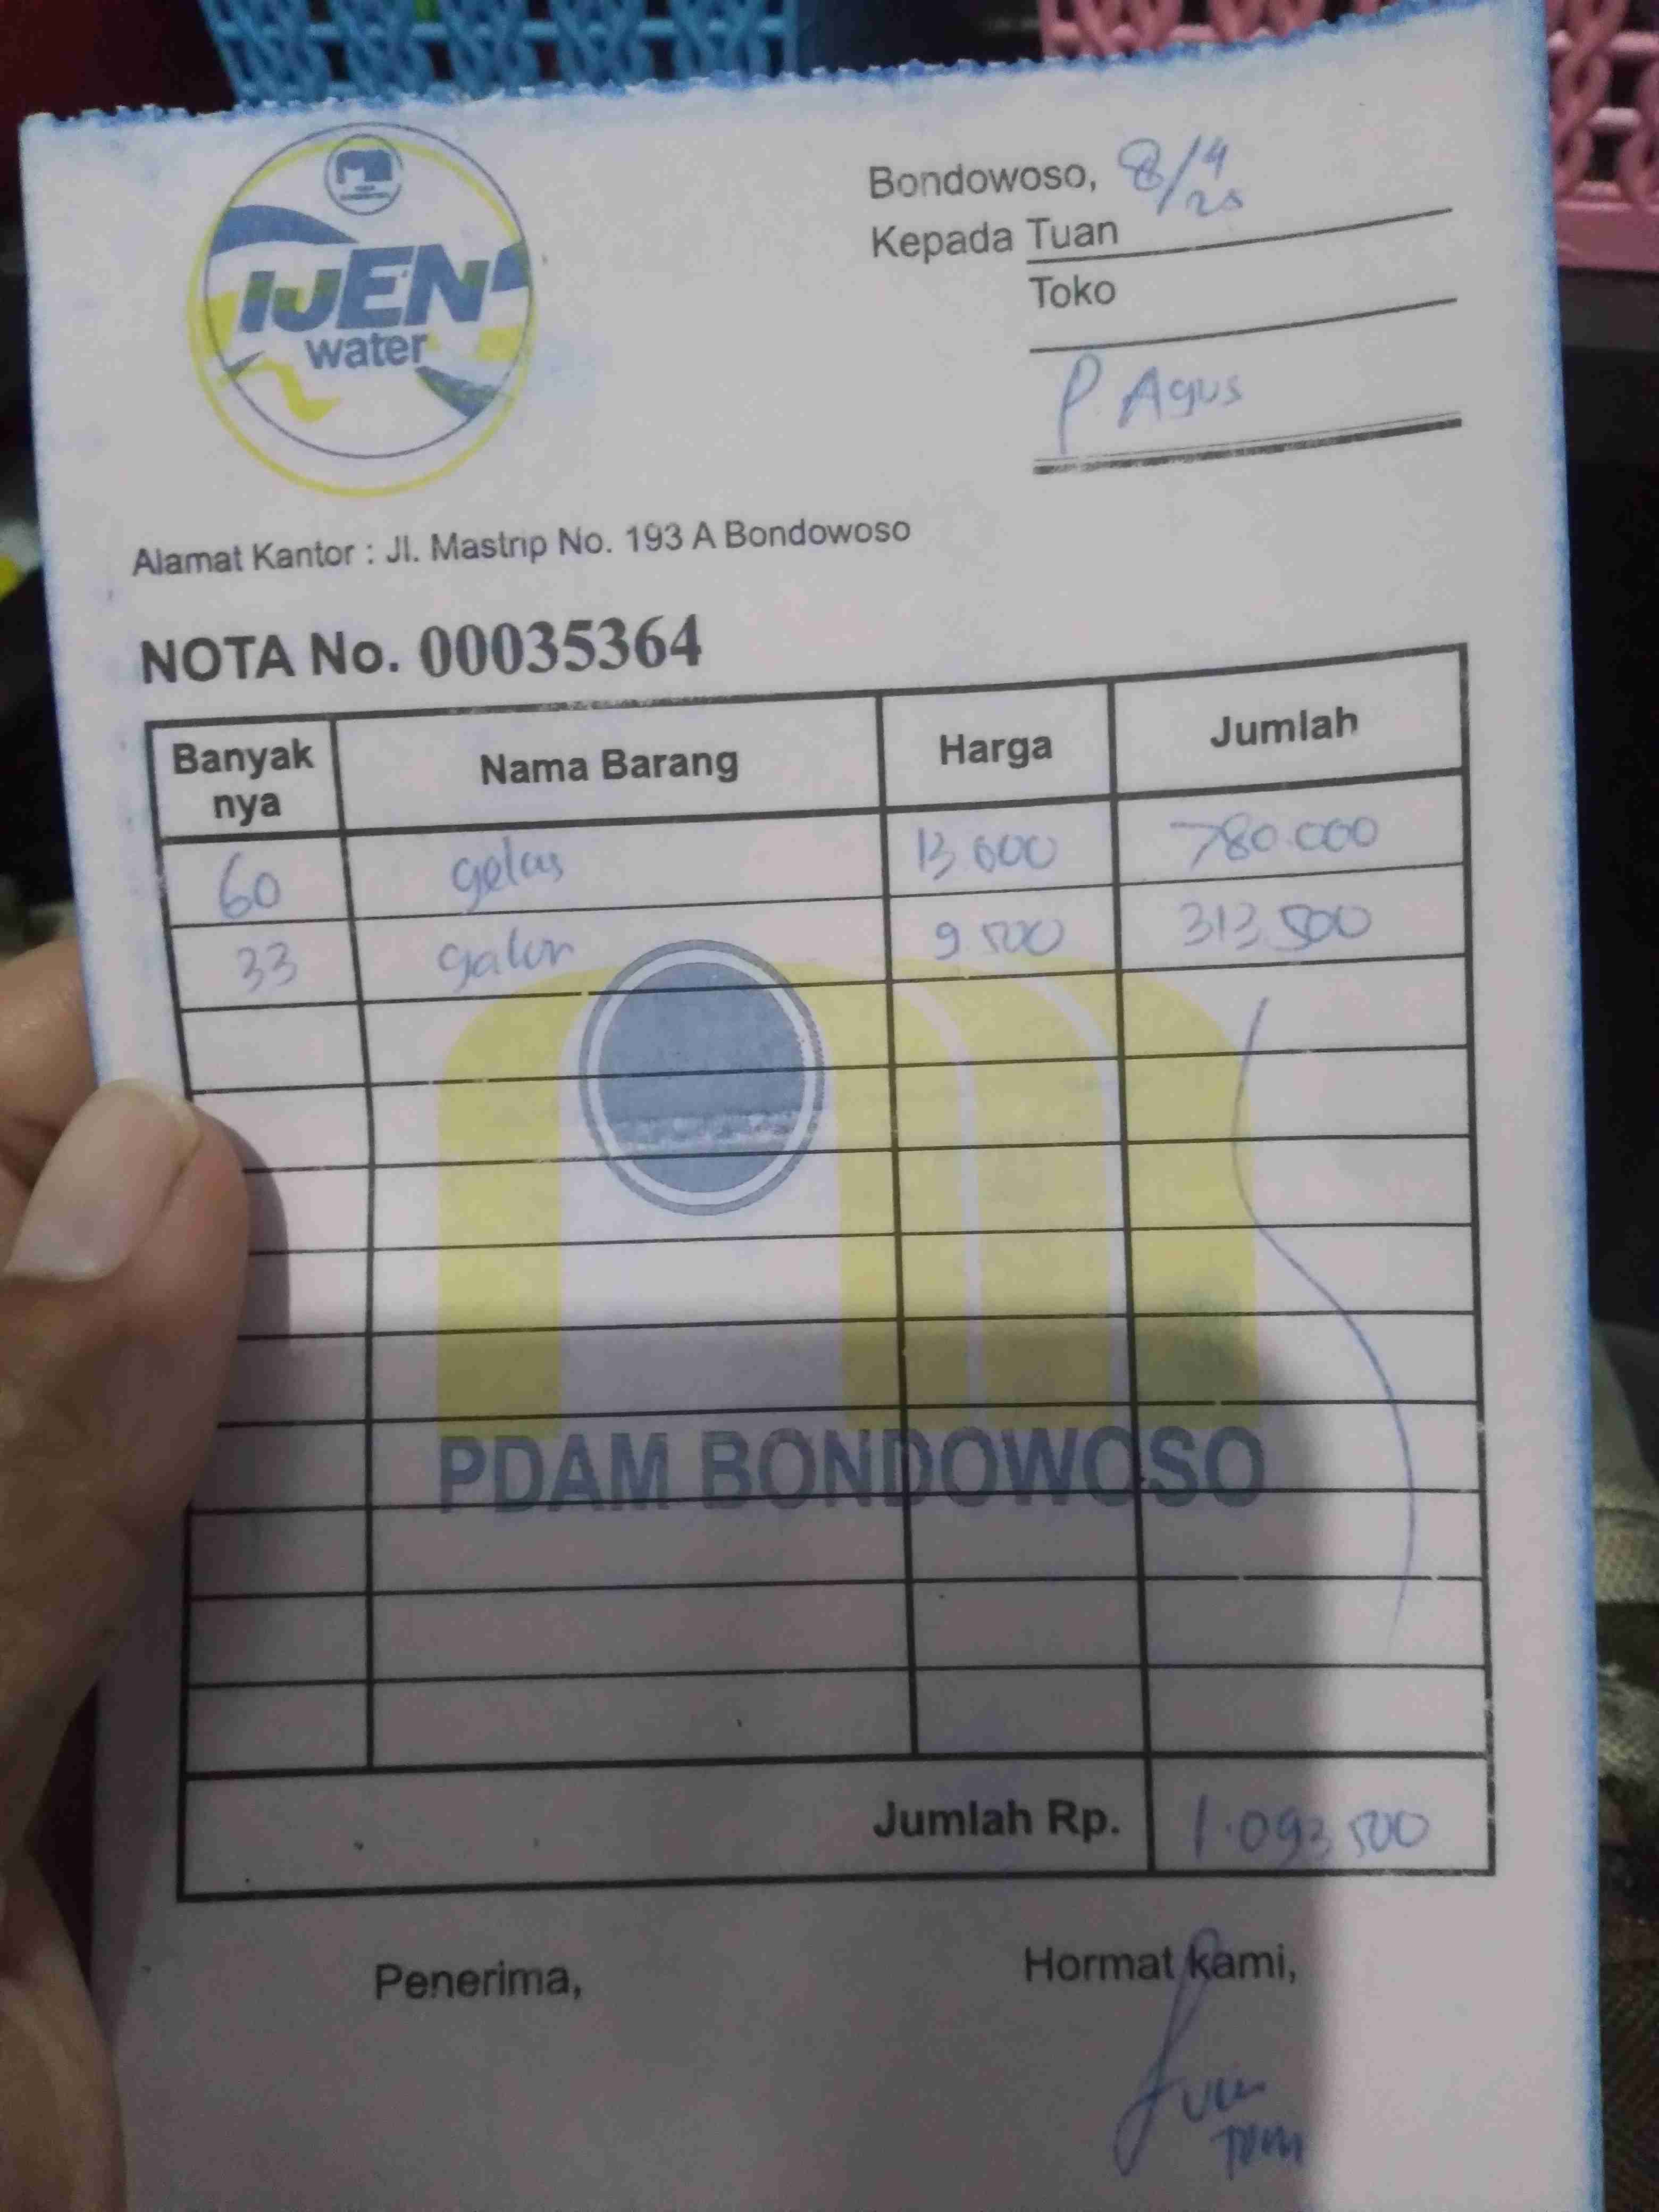 IJEN
water
Bondowoso, 8/4
25
Kepada Tuan
Toko
P. Agus
Alamat Kantor : Jl. Mastrip No. 193 A Bondowoso
NOTA No. 00035364
Banyak nya Nama Barang Harga Jumlah
60 gelas 13.000 780.000
33 galon 9.500 313.500
PDAM BONDOWOSO
Jumlah Rp. 1.093.500
Penerima, Hormat kami,